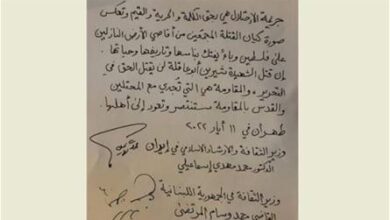 جريمة الاحتلال هي بحق الكلمة والحرية والقيم وتعكس
صورة كيان القتلة المجتمعين من أقاصي الأرض النازلين
على فلسطين وباءً يفتك بناسها وتاريخها وحياتها.
إن قتل الشهيدة شيرين أبو عاقلة لن يقتل الحق في
التحرير، والمقاومة هي التي تُجدي مع المحتلين
والقدس بالمقاومة ستنتصر وتعود إلى أهلها.
طهران في ١١ أيار ٢٠٢٢
وزير الثقافة والإرشاد الإسلامي في إيران
الدكتور محمد مهدي إسماعيلي
وزير الثقافة في الجمهورية اللبنانية
القاضي محمد وسام المرتضى